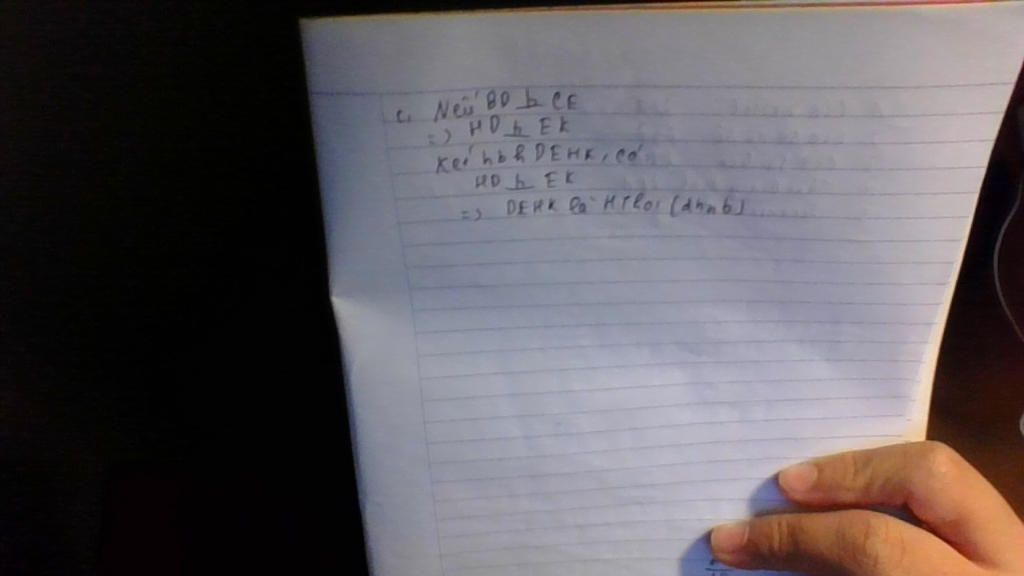 c, Nếu BD ⊥ CE
=> HD ⊥ EK
Xét hbh DEHK, có
HD ⊥ EK
=> DEHK là HThoi (dhnb)